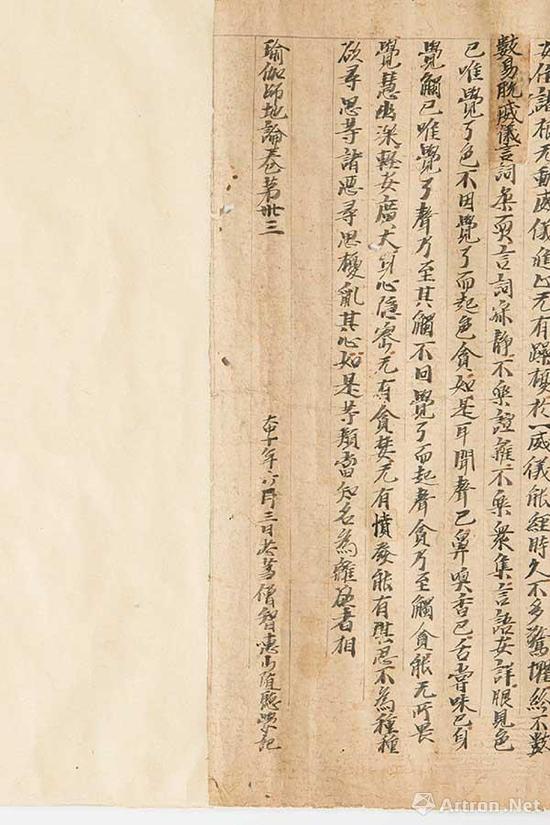 住諸根无動威儀進止无有躁擾於一威儀能經時久不多驚懼終不數
數易脫威儀言詞柔耎言詞寂靜不樂諠雜不樂衆集言語安詳眼見色
已唯覺了色不因覺了而起色貪如是耳聞聲已鼻嗅香已舌嘗味已身
覺觸已唯覺了聲乃至其觸不因覺了而起聲貪乃至觸貪能无所畏
覺慧幽深輕安廣大身心隱密无有貪婪无有憤發能有堪忍不為種種
欲尋思等諸惡尋思擾亂其心如是等類當知名為離欲者相
瑜伽師地論卷第卅三
大中十年六月三日苾蒭僧智惠山隨聽學記
Artron.Net